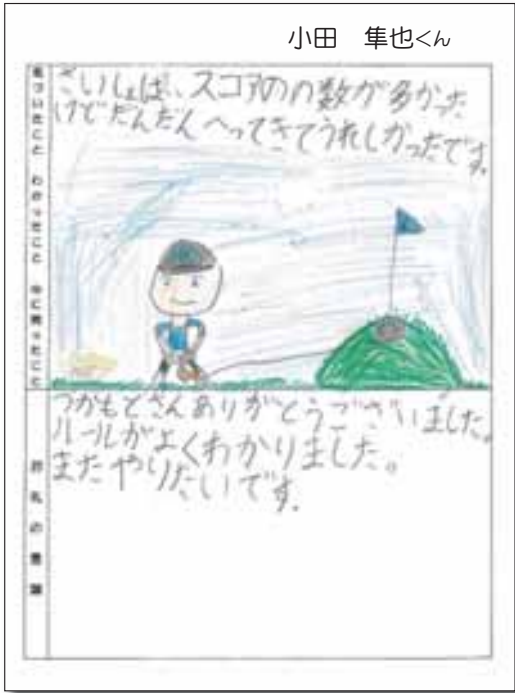 小田 隼也くん
気づいたこと わかったこと 心に残ったこと
さいしょは、スコアのの数が多かった
けどだんだんへってきてうれしかったです。
お礼の言葉
つかもとさんありがとうございました。
ルールがよくわかりました。
またやりたいです。